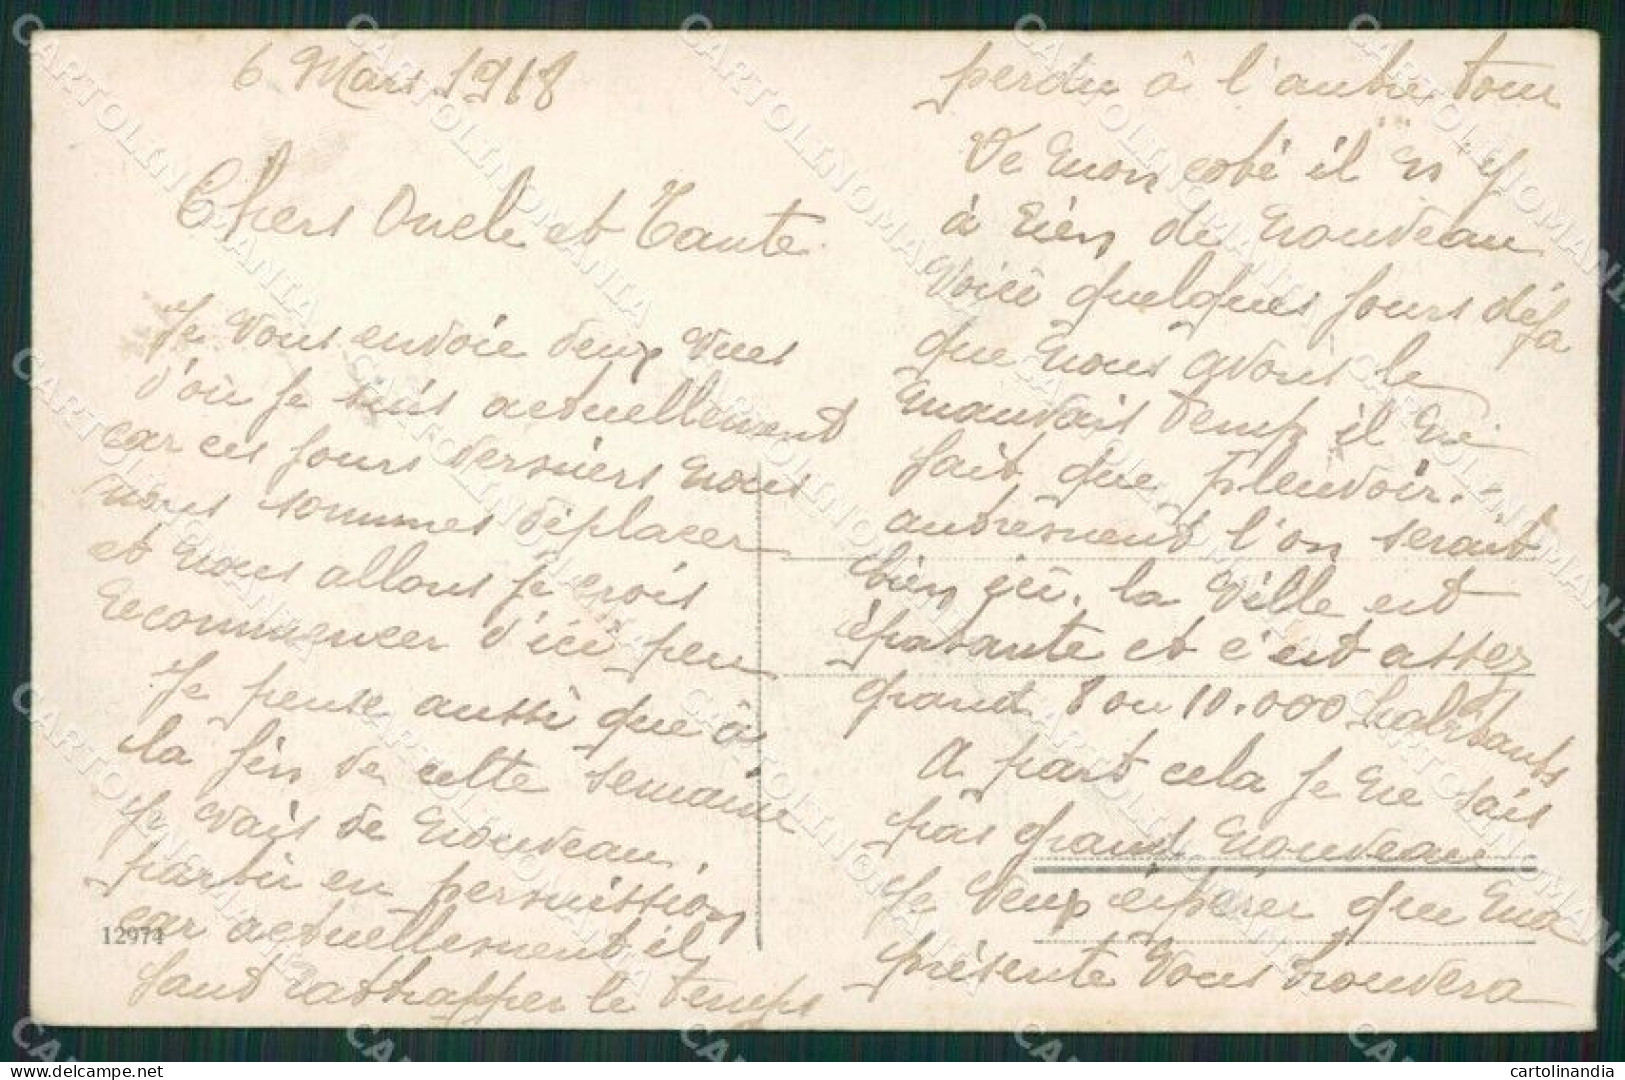 6 Mars 1918
Chers Oncle et Tante.
Je vous envoie deux vues
d'où je suis actuellement
car ces jours derniers nous
nous sommes déplacer
et nous allons je crois
recommencer d'ici peu
Je pense aussi que à
la fin de cette semaine
je vais de nouveau
partir en permission
car actuellement il
faut rathapper le temps
12974
perdu à l'autre tour
De mon coté il n y
à rien de nouveau
Voici quelques jours déja
que nous avons le
mauvais temp il ne
fait que pleuvoir.
autrement l'on serait
bien içi. la Ville est
épatante et c'est assez
grand 8 ou 10.000 habitants
A part cela je ne sais
pas grand nouveau
Je veux éspérer que ma
présente vous trouvera
CARTOLINOMANIA
cartolinandia